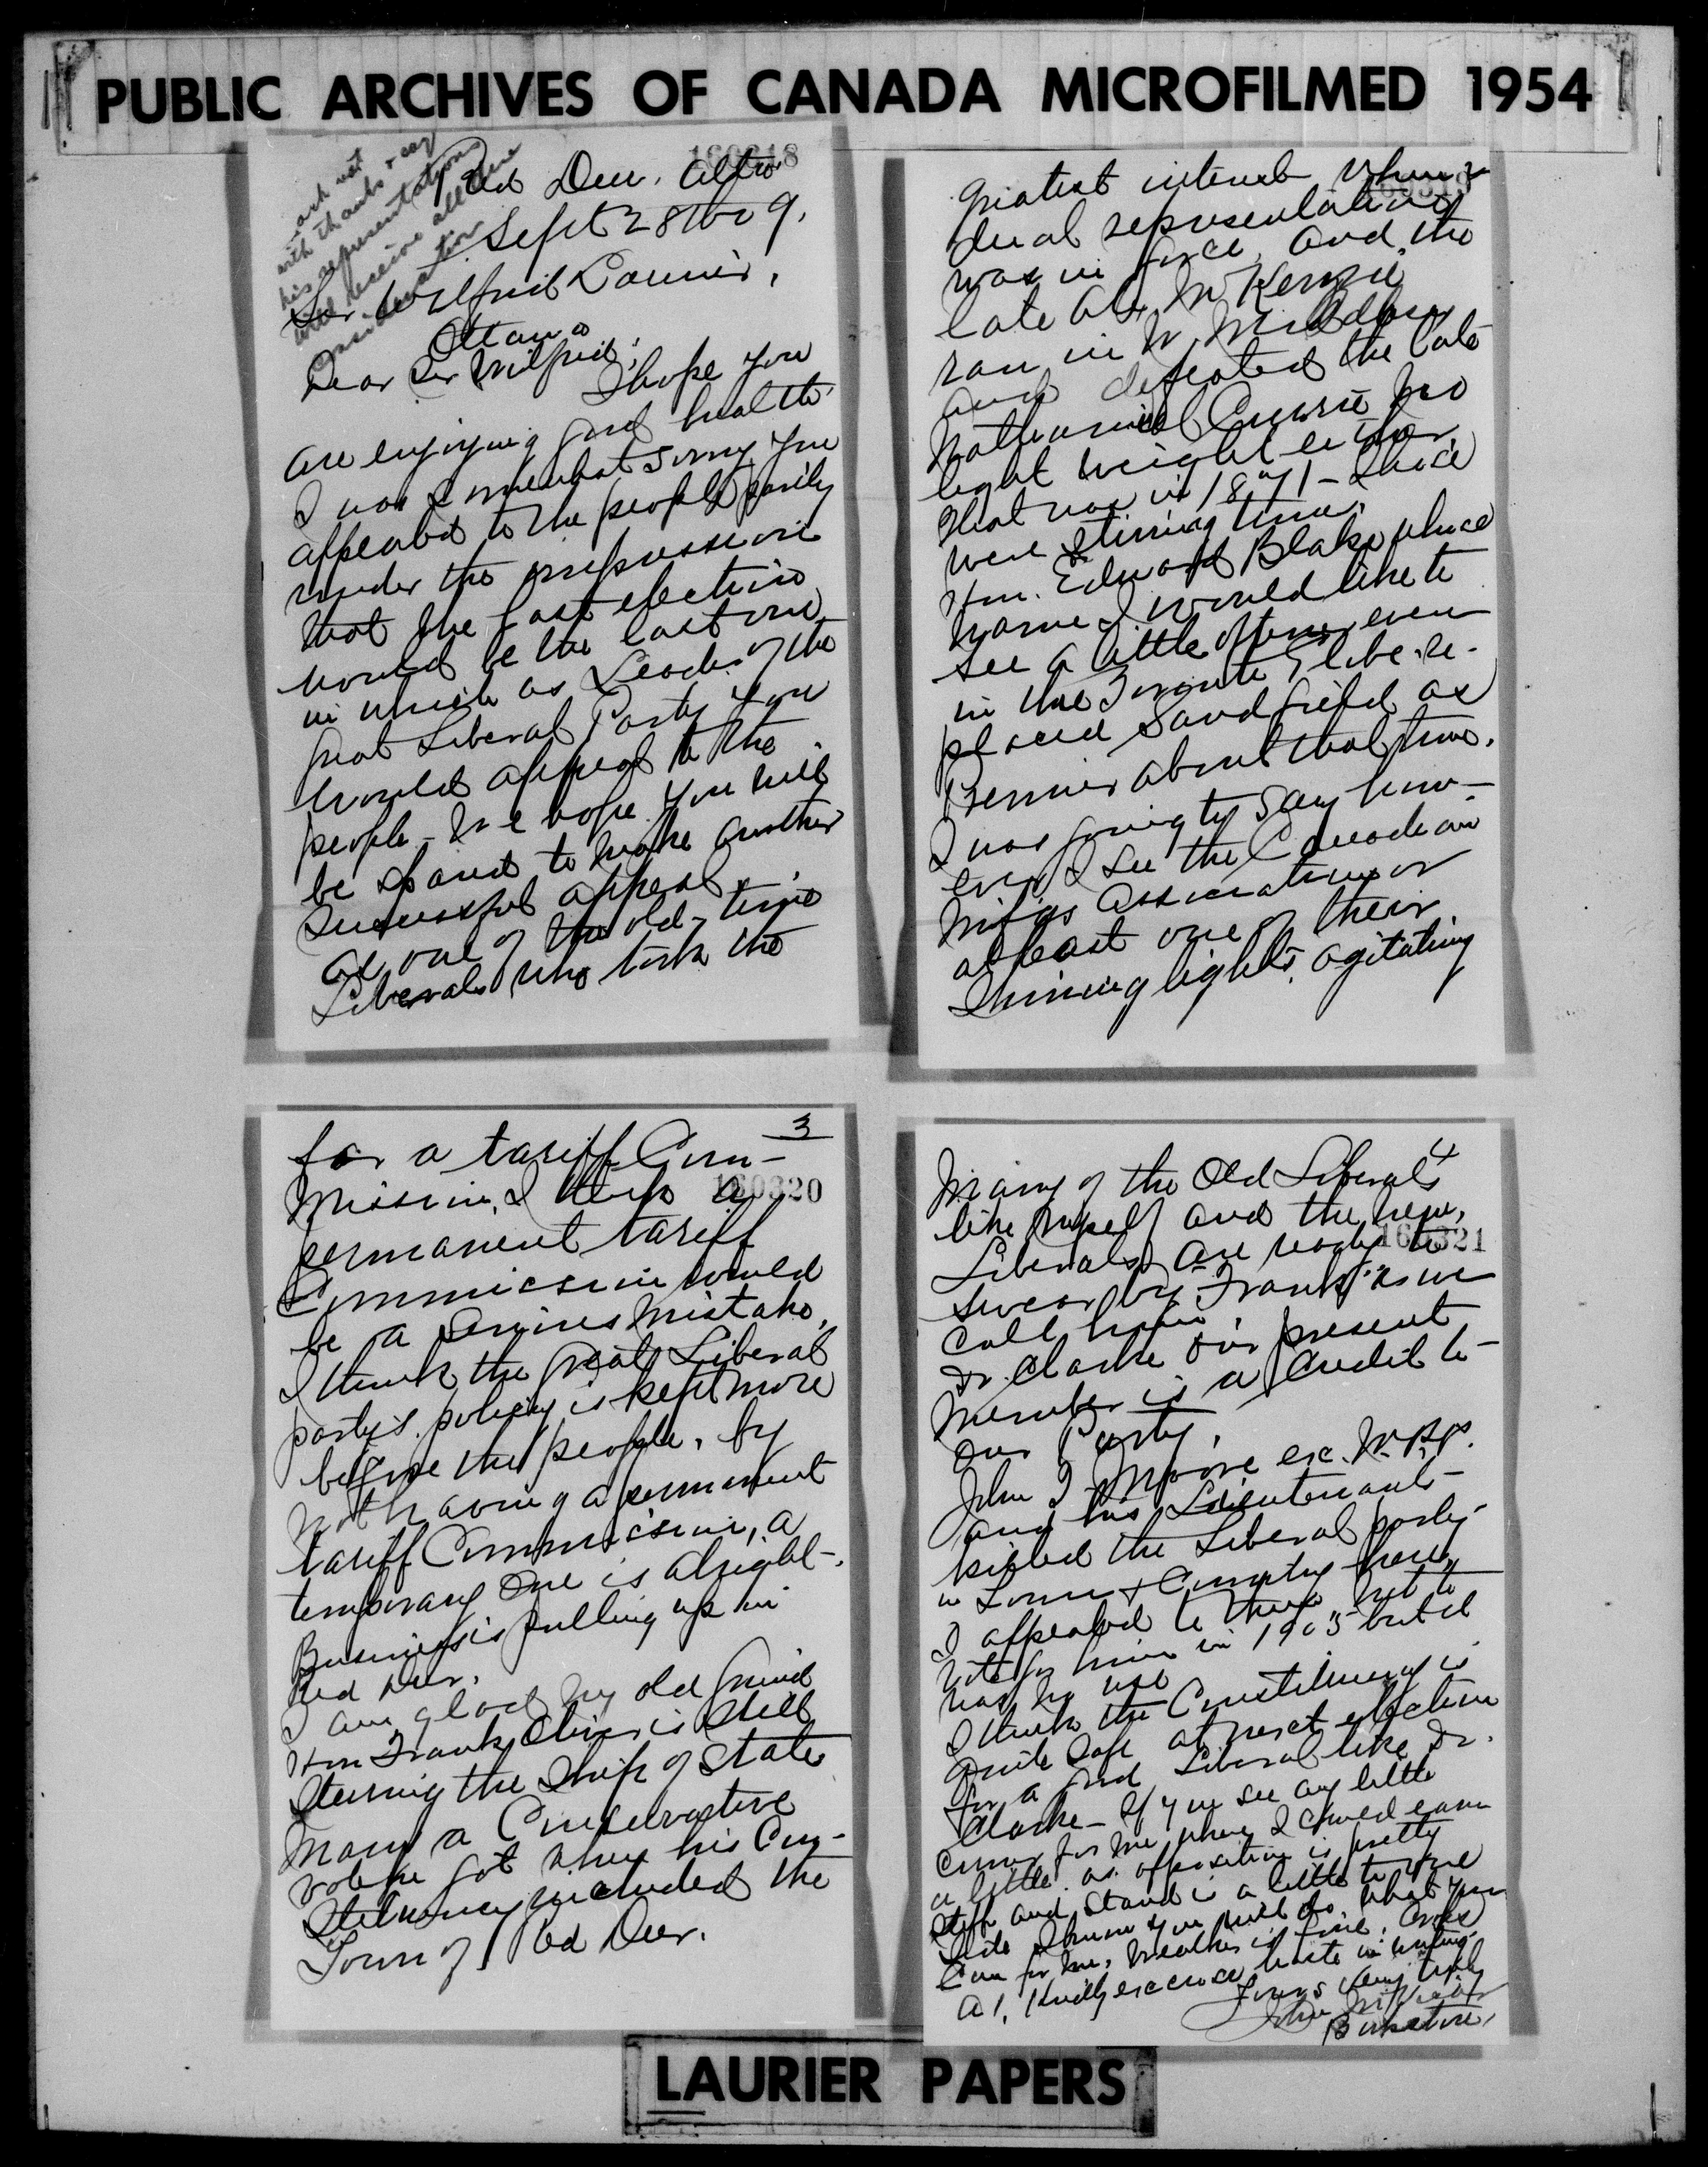 PUBLIC ARCHIVES OF CANADA MICROFILMED 1954
ack not
with thanks & say
his representations
will receive all due
consideration
160318
Red Deer. Alta
Sept 28th 09.
Sir Wilfrid Laurier,
Ottawa
Dear Sir Wilfrid;
I hope you
are enjoying good health
I was somewhat sorry you
appealed to the people partly
under the impression
that the last election
would be the last one
in which as Leader of the
great Liberal Party you
would appeal to the
people - We hope you will
be spared to make another
successful appeal.
As one of the old-time
Liberals who took the
2
greatest interest when
dual representation
was in force, and the
late Alex McKenzie
ran in W. Middlesex
and defeated the late
Nathaniel Currie no
light weight either.
That was in 1871 - Those
were stirring times.
Hon. Edward Blake whose
name I would like to
see a little oftener even
in the Toronto Globe re-
placed Sandfield as
Premier about that time.
I was going to say how-
ever I see the Canadian
Mnfgs Association or
at least one of their
shining lights, agitating
3
160320
for a tariff Com-
mission, I think a
permanent tariff
Commission would
be a serious mistake,
I think the great Liberal
party's policy is kept more
before the people, by
not having a permanent
tariff Commission, a
temporary one is alright.
Business is pulling up in
Red Deer.
I am glad my old friend
Hon Frank Oliver is still
steering the Ship of State
Many a Conservative
vote he got when his Con-
stituency included the
Town of Red Deer.
4
160321
Many of the Old Liberals
like myself and the new
Liberals are ready to
swear by "Frank" as we
call him.
Dr. Clarke our present
Member is a credit to
our Party.
John T Moore ex. M.P.P.
and his Lieutenants
killed the Liberal party
in Town & Country here,
I appealed to them not to
vote for him in 1905 but it
was no use
I think the Constituency is
quite safe at next election
for a good Liberal like Dr.
Clarke - If you see any little
corner for me where I could earn
a little as opposition is pretty
stiff and stand is a little to one
side I know you will do what you
can for me, Weather is fine, Crops
A1, Kindly excuse haste in writing
Yours very truly
John